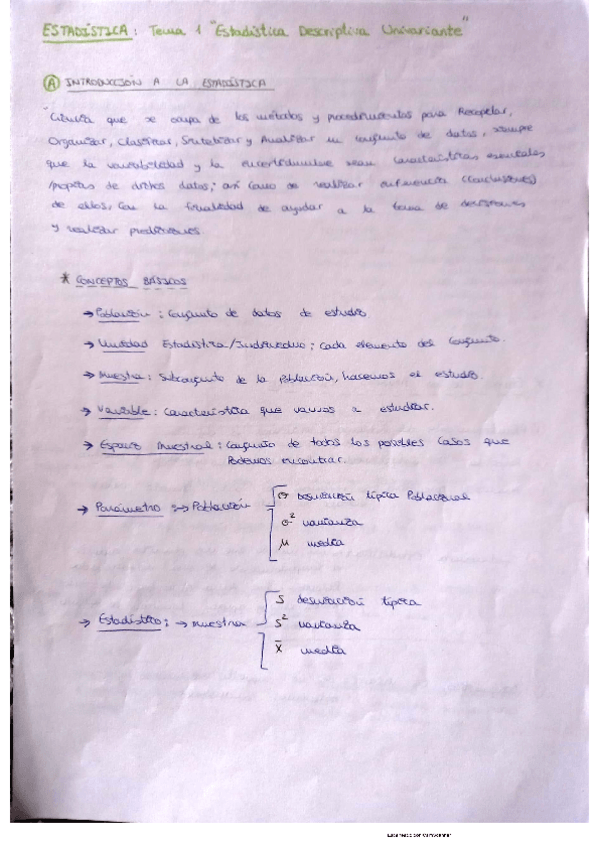 ESTADÍSTICA: Tema 1 "Estadística Descriptiva Univariante"
A INTRODUCCIÓN A LA ESTADÍSTICA
Ciencia que se ocupa de los métodos y procedimientos para Recopilar,
Organizar, Clasificar, Sintetizar y Analizar un conjunto de datos, siempre
que la variabilidad y la incertidumbre sean características esenciales
/propias de dichos datos; así como de realizar inferencia (conclusiones)
de ellos, con la finalidad de ayudar a la toma de decisiones
y realizar predicciones
* CONCEPTOS BÁSICOS
→ Población: Conjunto de datos de estudio.
→ Unidad Estadística/Individuo: Cada elemento del conjunto.
→ Muestra: Subconjunto de la población, hacemos el estudio.
→ Variable: Característica que vamos a estudiar.
→ Espacio Muestral: Conjunto de todos los posibles casos que
podemos encontrar.
→ Parámetro → Población
σ Desviación típica Poblacional
σ² varianza
μ media
→ Estadístico: → muestra
S desviación típica
S² varianza
x̄ media